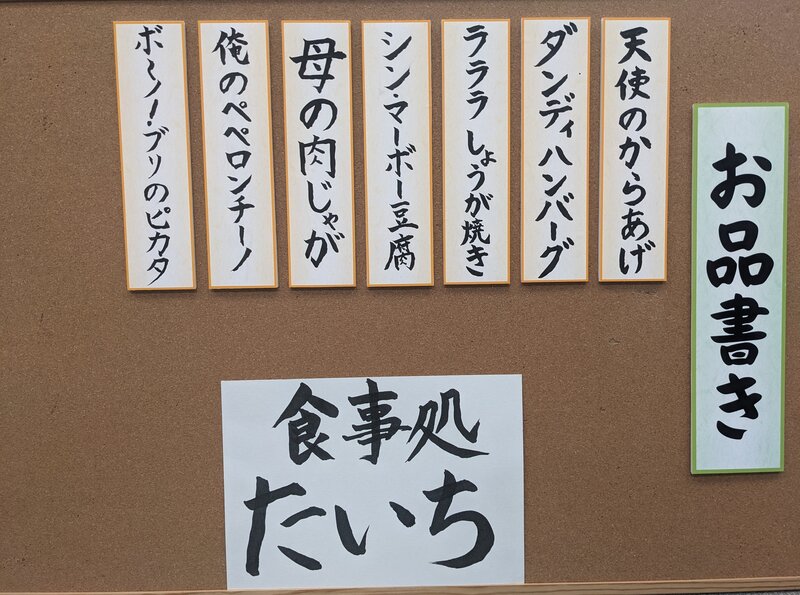 お品書き
天使のからあげ
ダンディハンバーグ
ラララしょうが焼き
シン・マーボー豆腐
母の肉じゃが
俺のペペロンチーノ
ボ〜ノ!・ブリのピカタ
食事処
たいち